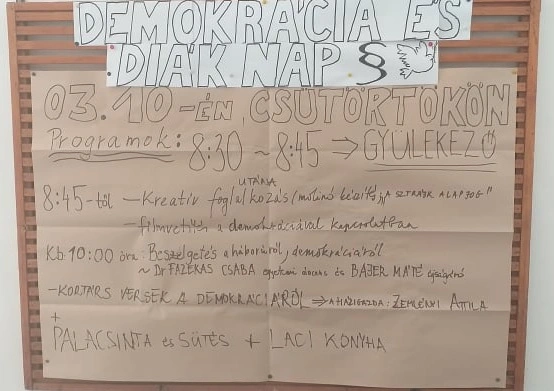 DEMOKRÁCIA ÉS
DIÁK NAP §
03.10-ÉN, CSÜTÖRTÖKÖN
Programok: 8:30 ~ 8:45 ⇒ GYÜLEKEZŐ
UTÁNA
8:45-től — Kreatív foglalkozás (molinó készítés, "A SZTRÁJK ALAPJOG"
— filmvetítés a demokráciával kapcsolatban
Kb. 10:00 óra: Beszélgetés a háborúról, demokráciáról
~ Dr FAZEKAS CSABA egyetemi docens és BAJER MÁTÉ újságíró
- KORTÁRS VERSEK A DEMOKRÁCIÁRÓL ⇒ A HÁZIGAZDA: ZEMLÉNYI ATTILA
+
PALACSINTA és SÜTÉS + LACI KONYHA